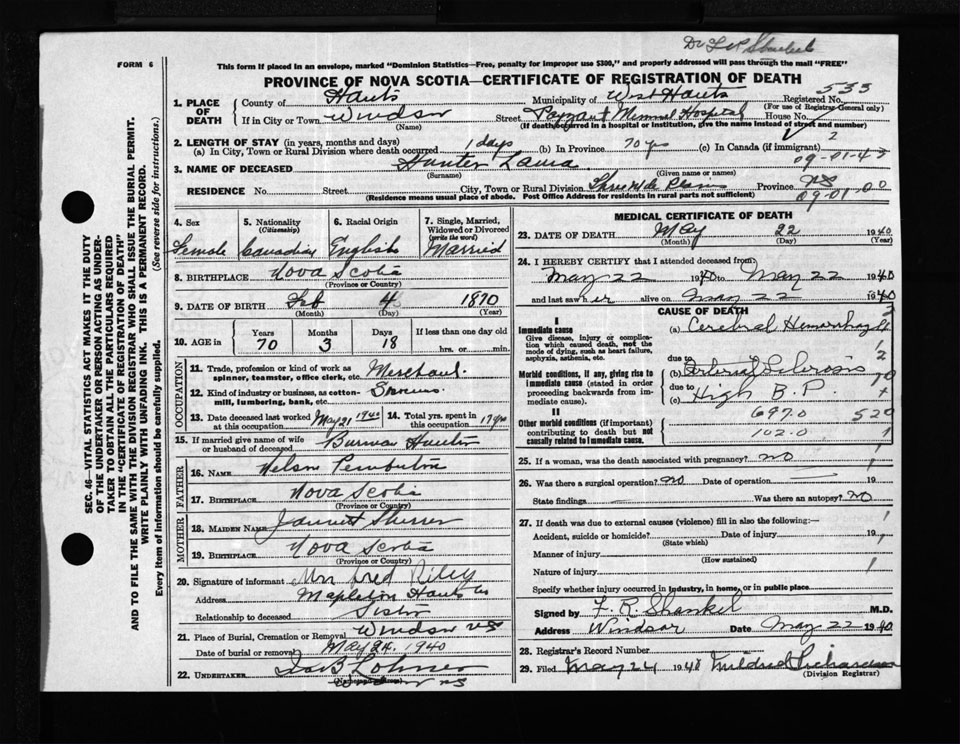 Dr F R Shankel
FORM 6
This form if placed in an envelope, marked "Dominion Statistics—Free, penalty for improper use $300," and properly addressed will pass through the mail "FREE"
PROVINCE OF NOVA SCOTIA—CERTIFICATE OF REGISTRATION OF DEATH
SEC. 46—VITAL STATISTICS ACT MAKES IT THE DUTY
OF THE UNDERTAKER OR PERSON ACTING AS UNDER-
TAKER TO OBTAIN ALL THE PARTICULARS REQUIRED
IN THE "CERTIFICATE OF REGISTRATION OF DEATH"
AND TO FILE THE SAME WITH THE DIVISION REGISTRAR WHO SHALL ISSUE THE BURIAL PERMIT.
WRITE PLAINLY WITH UNFADING INK. THIS IS A PERMANENT RECORD.
Every item of information should be carefully supplied. (See reverse side for instructions.)
1. PLACE OF DEATH
County of Hants Municipality of West Hants Registered No. 533
(For use of Registrar-General only)
If in City or Town Windsor Street Payzant Memorial Hospital House No.
(Name) (If death occurred in a hospital or institution, give the name instead of street and number)
2. LENGTH OF STAY (in years, months and days)
(a) In City, Town or Rural Division where death occurred 1 days (b) In Province 70 yrs (c) In Canada (if immigrant) 2
09-01-43
3. NAME OF DECEASED Hunter Laura
(Surname) (Given name or names)
RESIDENCE No. Street City, Town or Rural Division Three Mile Plains Province NS
(Residence means usual place of abode. Post Office Address for residents in rural parts not sufficient) 09-01-00
4. Sex Female
5. Nationality (Citizenship) Canadian
6. Racial Origin English
7. Single, Married, Widowed or Divorced (write the word) Married
8. BIRTHPLACE Nova Scotia
(Province or Country)
9. DATE OF BIRTH Feb 4 1870
(Month) (Day) (Year)
10. AGE in Years 70 Months 3 Days 18 If less than one day old hrs. or min.
OCCUPATION
11. Trade, profession or kind of work as spinner, teamster, office clerk, etc. Merchant
12. Kind of industry or business, as cotton-mill, lumbering, bank, etc.
13. Date deceased last worked at this occupation May 21 1940 14. Total yrs. spent in this occupation 17 yrs
15. If married give name of wife or husband of deceased Hunter
FATHER
16. NAME Nelson Pemberton
17. BIRTHPLACE Nova Scotia
(Province or Country)
MOTHER
18. MAIDEN NAME
19. BIRTHPLACE Nova Scotia
(Province or Country)
20. Signature of informant Mrs Fred Riley
Address Mapleton Hants Co
Relationship to deceased Sister
21. Place of Burial, Cremation or Removal Windsor NS
Date of burial or removal May 24, 1940
22. UNDERTAKER
Windsor NS
MEDICAL CERTIFICATE OF DEATH
23. DATE OF DEATH May 22 1940
(Month) (Day) (Year)
24. I HEREBY CERTIFY that I attended deceased from:
May 22 1940 to May 22 1940
and last saw her alive on May 22 1940
CAUSE OF DEATH
I
Immediate cause (a) Cerebral Hemorrhage
Give disease, injury or complication which caused death, not the mode of dying, such as heart failure, asphyxia, asthenia, etc.
due to
Morbid conditions, if any, giving rise to immediate cause (stated in order proceeding backwards from immediate cause). (b) Arterial Sclerosis
due to
(c) High B.P.
II
Other morbid conditions (if important) contributing to death but not causally related to immediate cause.
697.0 520
102.0
25. If a woman, was the death associated with pregnancy? No
26. Was there a surgical operation? No Date of operation 19
State findings Was there an autopsy? No
27. If death was due to external causes (violence) fill in also the following:—
Accident, suicide or homicide? Date of injury 19
(State which)
Manner of injury
(How sustained)
Nature of injury
Specify whether injury occurred in industry, in home, or in public place
Signed by F. R. Shankel M.D.
Address Windsor Date May 22 1940
28. Registrar's Record Number
29. Filed May 1940 Mildred Richardson
(Division Registrar)